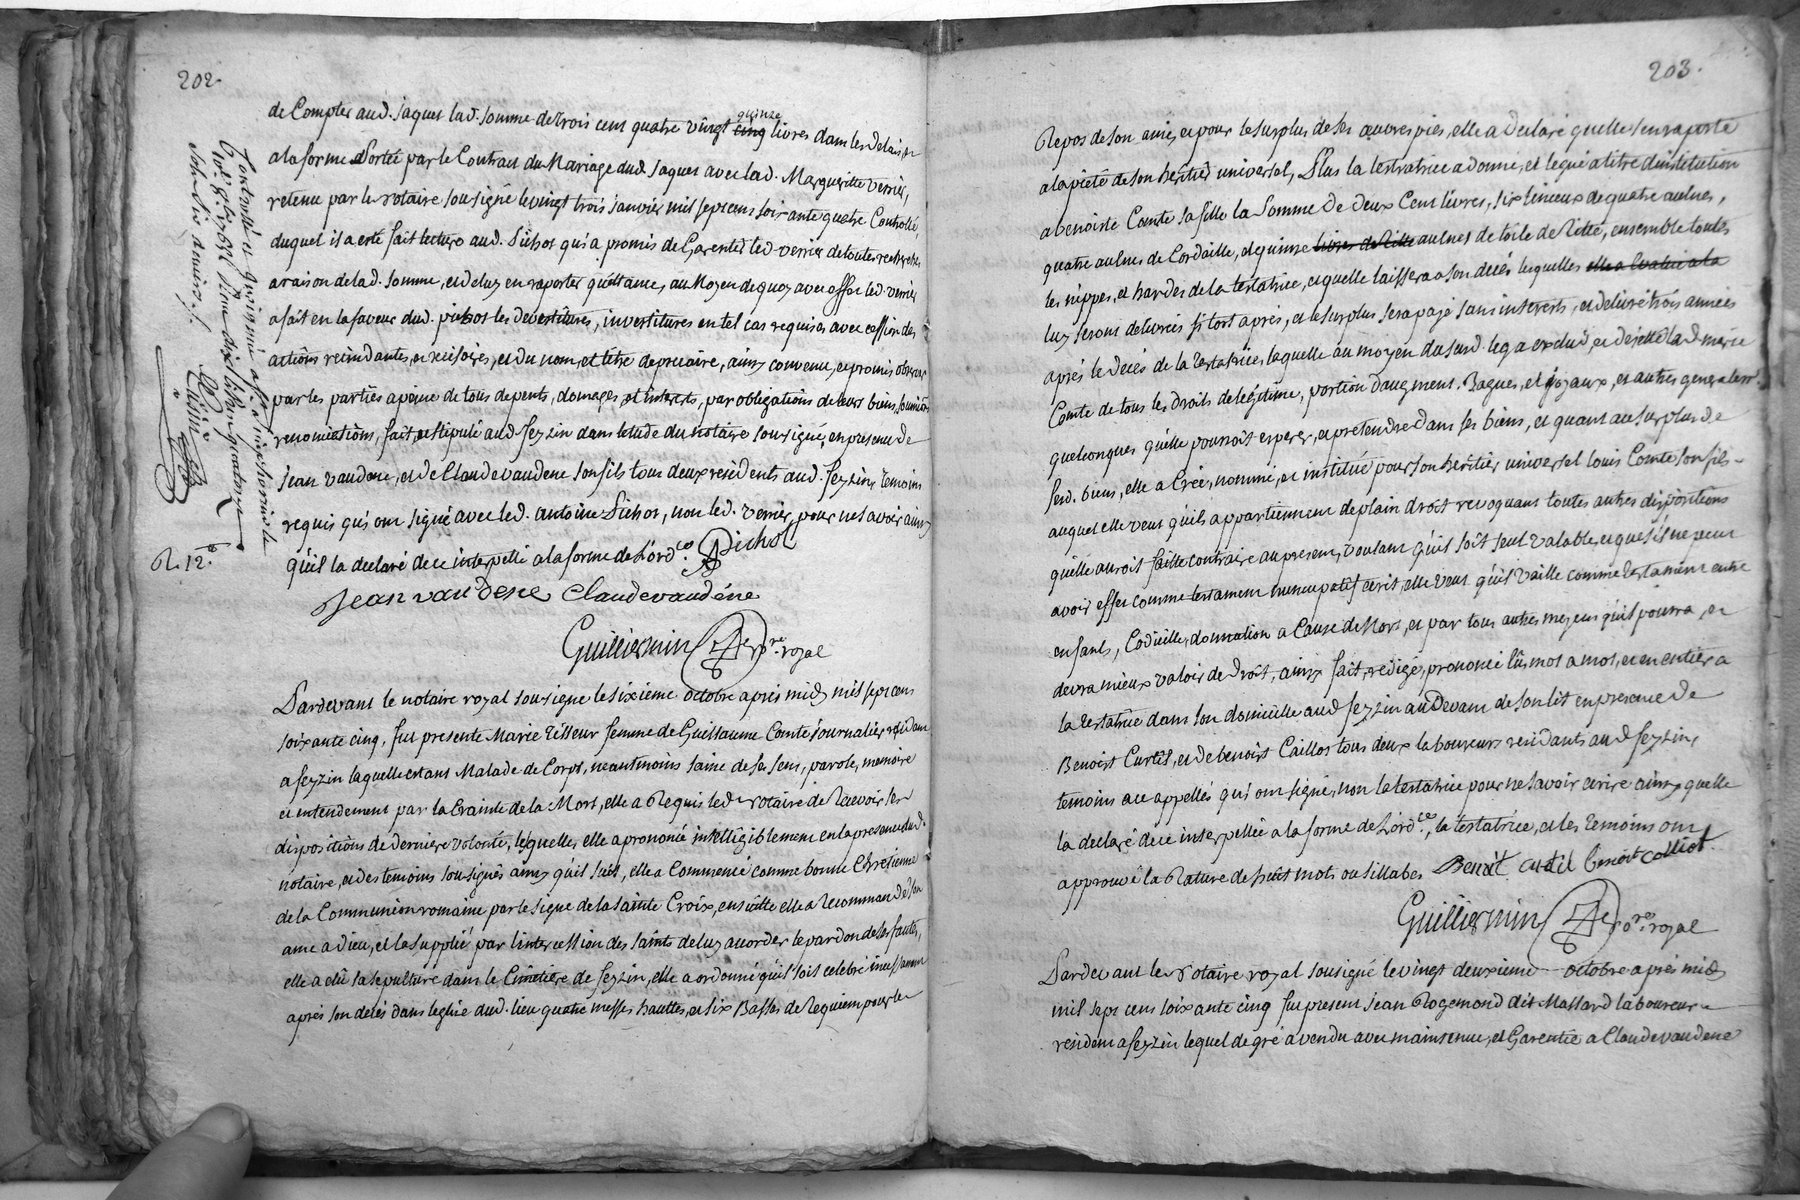 202.
quinze
de Compter aud. jaques lad. somme de trois cent quatre vingt cinq livres dans les delais et
a la forme portée par le Contract du Mariage dud. jaques avec lad. Margueritte verrier,
retenu par le notaire sousigné le vingt trois janvier mil sept cens soixante quatre Controllé,
duquel il a esté fait lecture aud. Pichot qui a promis de Garentir led. verrier de toutes recherches
a raison de lad. somme, et de luy en raporter quittance, au Moyen de quoy avec effet led. verrier
a fait en la faveur dud. pichot les devestitures, investitures en tel cas requises avec cession des
actions rescindantes, et rescisoires, et du nom, et titre de precaire, ainsy convenu, et promis observer
par les parties a peine de tous depents, domages, et interests, par obligations de leurs biens, soumissions
renonciations, fait, et stipulé aud. feyzin dans letude du notaire sousigné, en presence de
jean vaudene, et de Claude vaudene son fils tous deux residents aud. feyzin, temoins
requis qui ont signé avec led. antoine Pichot, non led. verrier, pour ne savoir ainsy
qu'il la declaré de ce interpellé a la forme de l'ord.ce Pichot
jean vaudene Claude vaudéne
Guilliermin no.re royal
Controllé et
R. 12.s
Pardevant le notaire royal sousigné le sixieme octobre apres midy mil sept cens
soixante cinq, fut presente Marie Tisseur femme de Guillaume Comte journalier residant
a feyzin laquelle etant Malade de Corps, neantmoins saine de ses sens, parole, memoire
et entendement par la Crainte de la Mort, elle a Requis led. notaire de Recevoir ses
dispositions de derniere volonté, lesquelles elle a prononcé intelligiblement en la presence dud.
notaire, et des temoins sousignés ainsy qu'il suit, elle a Commencé comme bonne Chretienne
de la Communion romaine par le signe de la sainte Croix, ensuitte elle a recommandé son
ame a dieu, et la supplié par l'intercession des saints de luy accorder le pardon de ses fautes,
elle a elû sa sepulture dans le Cimetiere de feyzin, elle a ordonné qu'il soit celebré incessament
après son decés dans leglise dud. lieu quatre messes hauttes, et six Basses de Requiem pour le
203.
Repos de son ame, et pour le surplus de ses œuvres pies, elle a declaré quelle s'en raporte
a la pieté de son heritier universel, Plus la testatrice a donné, et legué a titre dinstitution
a benoite Comte sa fille la somme de deux Cent livres, six linceux de quatre aulnes,
quatre aulnes de Cordaille, et quinze livres de Ritte aulnes de toile de Ritte, ensemble toutes
les nippes, et hardes de la testatrice, et quelle laissera a son decés lesquelles elle a Evalué a la
luy seront delivrées si tost aprés, et le surplus sera payé sans interests, et delivré trois années
après le decés de la testatrice, laquelle au moyen du susd. leg a exclud, et dejetté lad. marie
Comte de tous les droits de légitime, portion daugment, Bagues, et joyaux, et autres generalement
quelconques quelle pourroit esperer, et pretendre dans ses biens, et quant au surplus de
sesd. biens, elle a Créé, nommé, et institué pour son heritier universel louis Comte son fils
auquel elle veut qu'ils appartiennent de plain droit revoquant toutes autres dispositions
quelle auroit faitte contraire au present, voulant qu'il soit seul valable, et que s'il ne peut
avoir effet comme testament nuncupatif ecrit, elle veut qu'il vaille comme testament entre
enfants, Codicille, donnation a Cause de Mort, et par tous autres moyens qu'il pourra, et
devra mieux valoir de droit, ainsy fait, redigé, prononcé lû mot a mot, et en entier a
la testatrice dans son domicille aud. feyzin au Devant de son lit en presence de
Benoist Curtil, et de benoist Caillot tous deux laboureurs residants aud. feyzin,
temoins a ce appellés qui ont signé, non la testatrice pour ne savoir ecrire ainsy quelle
la declaré de ce interpellée a la forme de l'ord.ce, la testatrice, et les temoins ont
approuvé la Rature de huit mots ou sillabes Benoit curtil benoit colliot
Guilliermin no.re royal
Pardevant le notaire royal sousigné le vingt deuxieme octobre apres midy
mil sept cens soixante cinq fut present jean Rogemond dit Massard laboureur
resident a feyzin lequel de gré a vendu avec maintenue, et Garentie a Claude vaudene